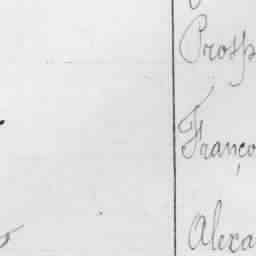 Prosp
Franço
Alexa